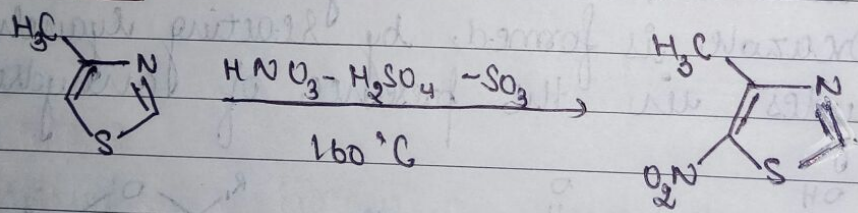 H3C
N
S
HNO3-H2SO4-SO3
160°C
H3C
N
O2N
S